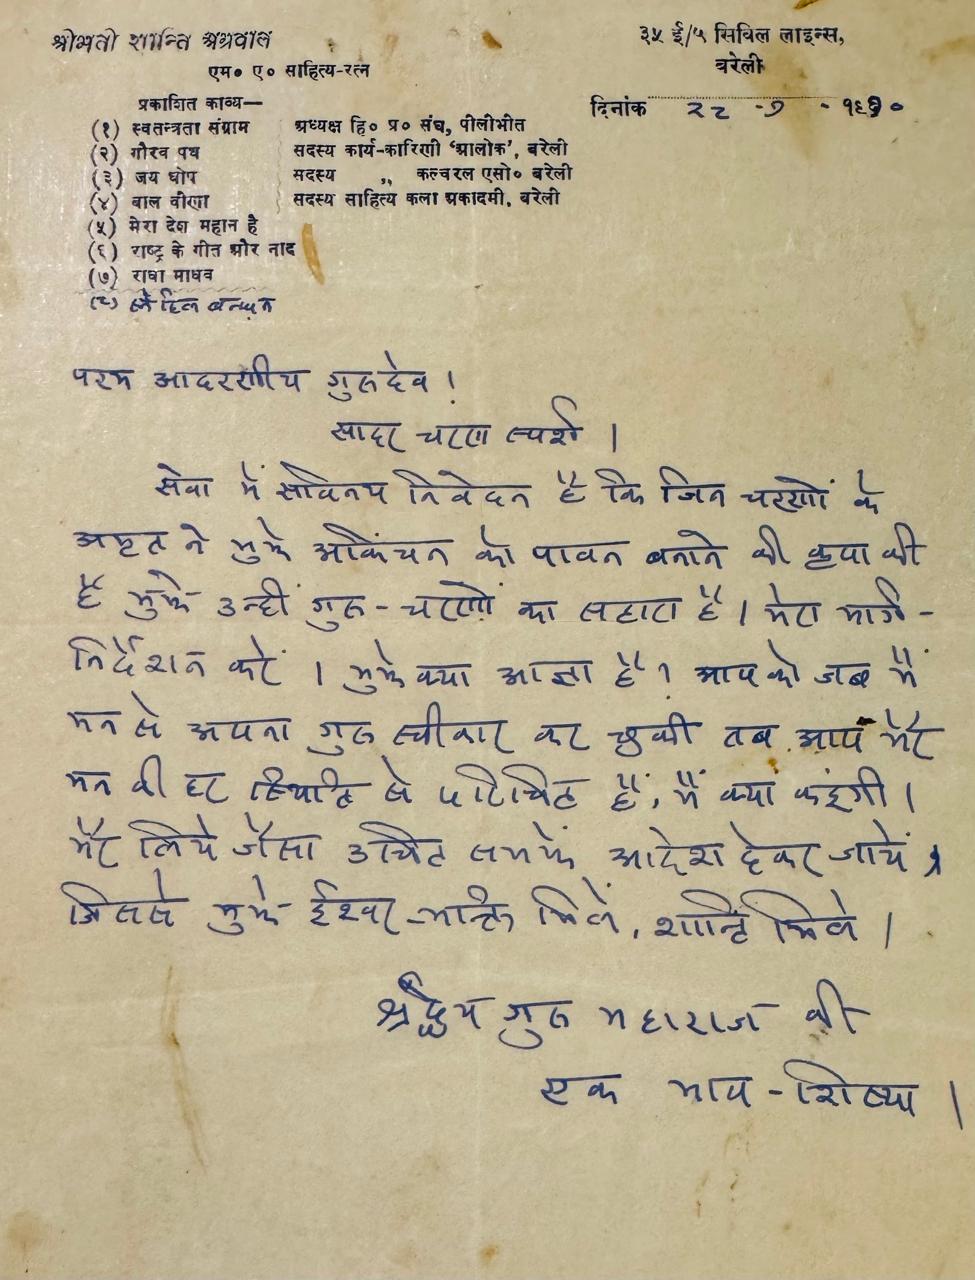 श्रीमती शान्ति अग्रवाल
एम० ए० साहित्य-रत्न
३५ ई/५ सिविल लाइन्स,
बरेली
दिनांक २८ -७- १९७०
प्रकाशित काव्य—
(१) स्वतन्त्रता संग्राम अध्यक्ष हि० प्र० संघ, पीलीभीत
(२) गौरव पथ सदस्य कार्य-कारिणी 'आलोक', बरेली
(३) जय घोष सदस्य ,, कल्चरल एसो० बरेली
(४) बाल वीणा सदस्य साहित्य कला अकादमी, बरेली
(५) मेरा देश महान है
(६) राष्ट्र के गीत और नाद
(७) राधा माधव
(८) स्नेहिल बन्धन
परम आदरणीय गुरुदेव !
सादर चरण स्पर्श ।
सेवा में सविनय निवेदन है कि जिन चरणों के
अमृत ने मुझे अकिंचन को पावन बनाने की कृपा की
है मुझे उन्हीं गुरु-चरणों का सहारा है । मेरा मार्ग-
निर्देशन करें । मुझे क्या आज्ञा है । आपको जब मैं
मन से अपना गुरु स्वीकार कर चुकी तब आप मेरे
मन की हर स्थिति से परिचित हैं, मैं क्या कहूंगी ।
मेरे लिये जैसा उचित समझें आदेश देकर जायें
जिससे मुझे ईश्वर-भक्ति मिले, शान्ति मिले ।
श्रद्धेय गुरु महाराज की
एक भाव-शिष्या ।